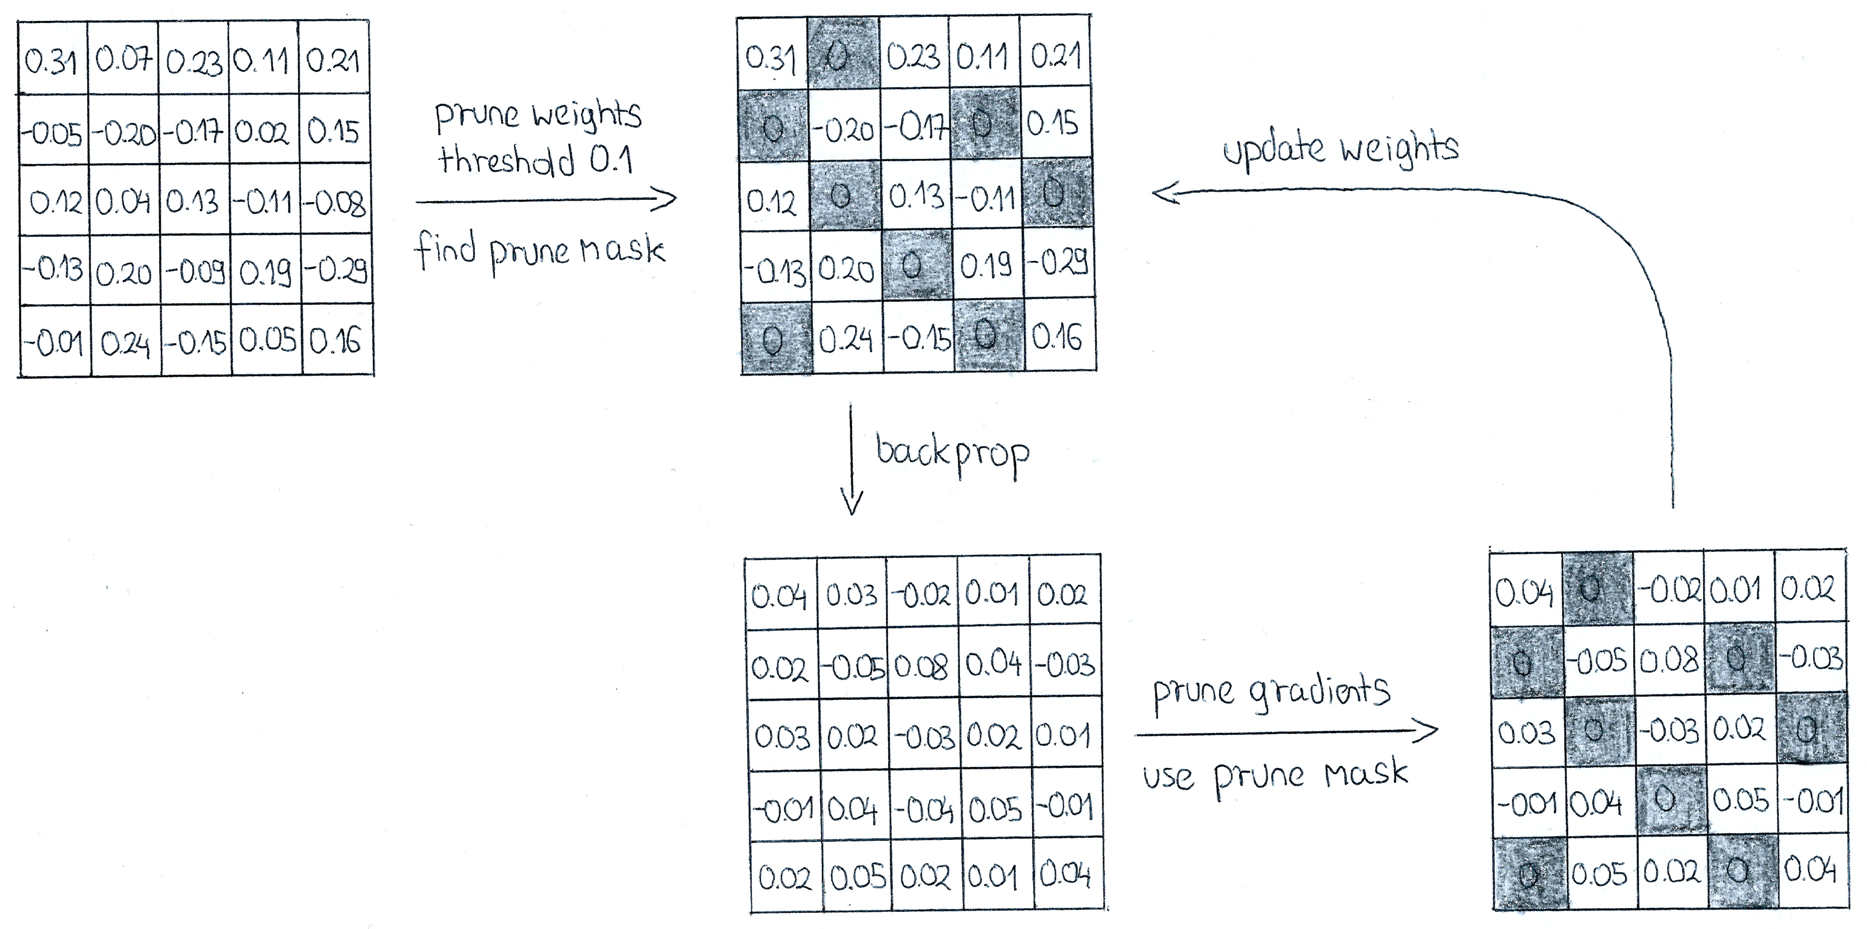 0.31 0.07 0.23 0.11 0.21
-0.05 -0.20 -0.17 0.02 0.15
0.12 0.04 0.13 -0.11 -0.08
-0.13 0.20 -0.09 0.19 -0.29
-0.01 0.24 -0.15 0.05 0.16
prune weights
threshold 0.1
find prune mask
0.31 0 0.23 0.11 0.21
0 -0.20 -0.17 0 0.15
0.12 0 0.13 -0.11 0
-0.13 0.20 0 0.19 -0.29
0 0.24 -0.15 0 0.16
update weights
backprop
0.04 0.03 -0.02 0.01 0.02
0.02 -0.05 0.08 0.04 -0.03
0.03 0.02 -0.03 0.02 0.01
-0.01 0.04 -0.04 0.05 -0.01
0.02 0.05 0.02 0.01 0.04
prune gradients
use prune mask
0.04 0 -0.02 0.01 0.02
0 -0.05 0.08 0 -0.03
0.03 0 -0.03 0.02 0
-001 0.04 0 0.05 -0.01
0 0.05 0.02 0 0.04